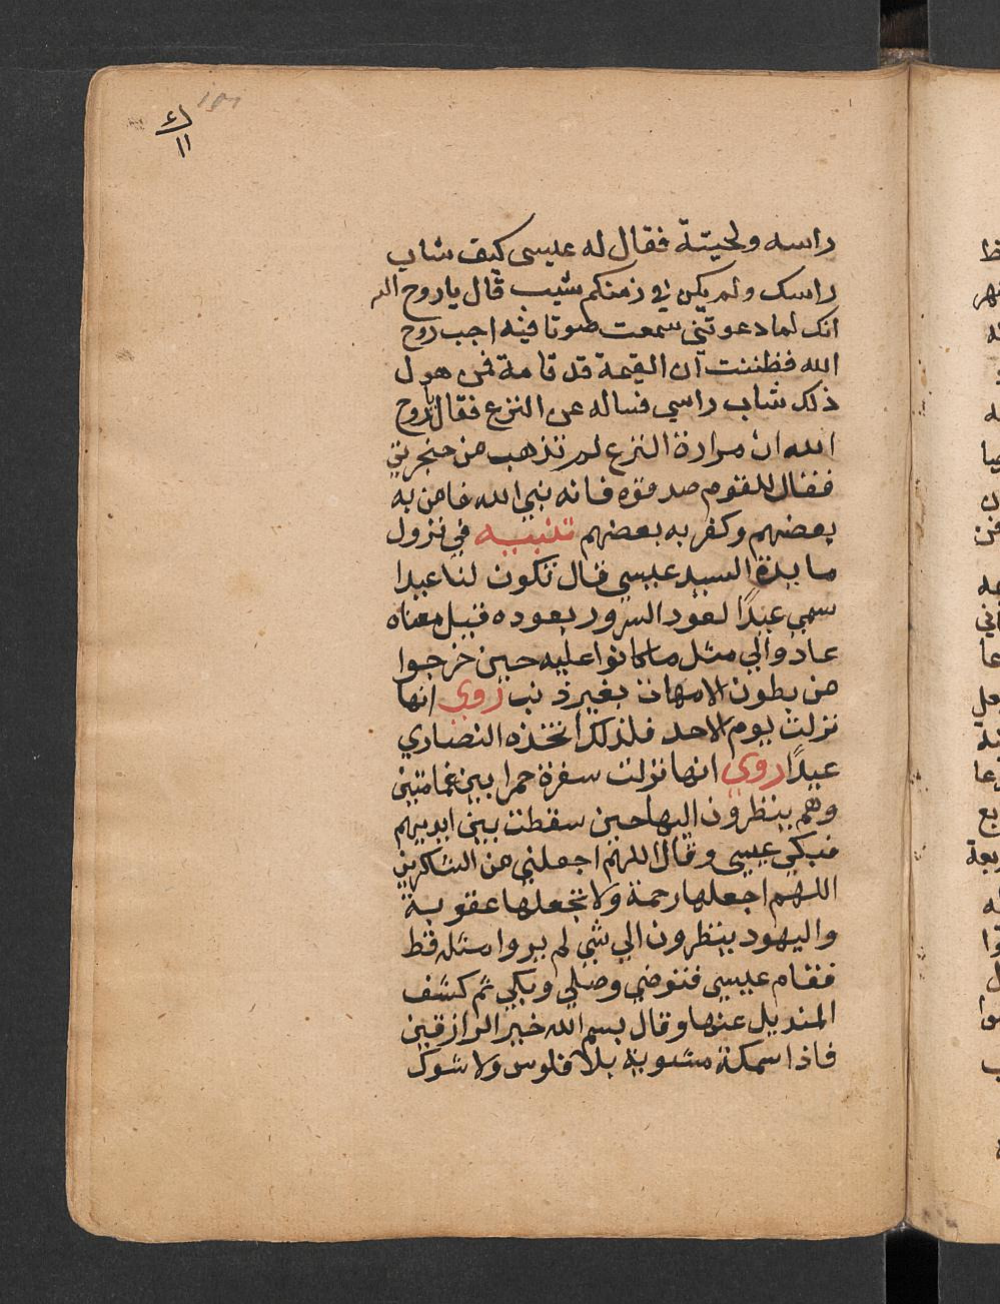 راسه ولحيتة فقال له عليسى كيف شاب
راسك ولم يكن في زمنكم شيب قال ياروح الله
انك لما دعوتني سمعت صوتا فيه اجب روح
الله فظننت ان القيمة قد قامة فمن هول
ذلك شاب راسي فساله عن النزع فقال ياروح
الله ان مرارة النزع لم تذهب من حنجرتي
فقال للقوم صدقوه فانه نبي الله فامن به
بعضهم وكفر به بعضهم تنبيه في نزول
مايدة السيد عيسى قال تكون لنا عيدا
سمي عيدًا لعود السرور بعوده قيل معناه
عادوا الي مثل ما كانوا عليه حين خرجوا
من بطون الامهات بغير ذنب روي انها
نزلت يوم الاحد فلذلك اتخذه النصاري
عيدًا روي انها نزلت سفرة حمرا بين غمامتين
وهم ينظرون اليها حين سقطت بين ايديهم
فبكي عيسى وقال اللهم اجعلني من الشاكرين
اللهم اجعلها رحمة ولا تجعلها عقوبة
واليهود ينظرون الي شي لم يروا مثله قط
فقام عيسى فتوضي وصلي وبكي ثم كشف
المنديل عنها وقال بسم الله خير الرازقين
فاذا سمكة مشوية بلا فلوس ولا شوك